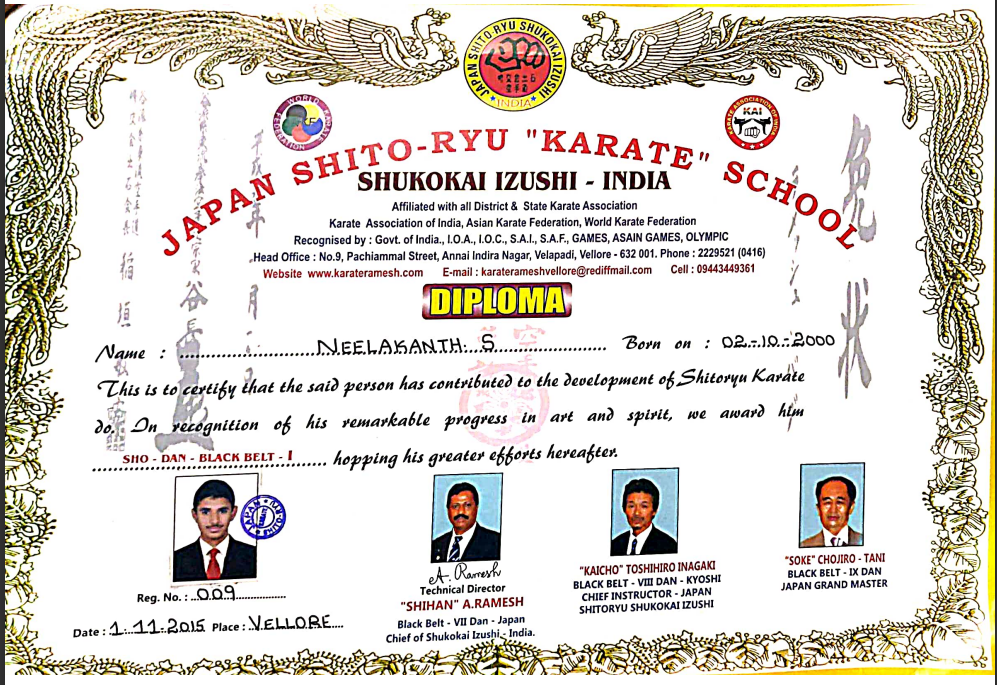 JAPAN SHITO-RYU SHUKOKAI IZUSHI
INDIA
WORLD KARATE FEDERATION
KAI
JAPAN SHITO-RYU "KARATE" SCHOOL
SHUKOKAI IZUSHI - INDIA
Affiliated with all District & State Karate Association
Karate Association of India, Asian Karate Federation, World Karate Federation
Recognised by : Govt. of India., I.O.A., I.O.C., S.A.I., S.A.F., GAMES, ASAIN GAMES, OLYMPIC
Head Office : No.9, Pachiammal Street, Annai Indira Nagar, Velapadi, Vellore - 632 001. Phone : 2229521 (0416)
Website www.karateramesh.com E-mail : karaterameshvellore@rediffmail.com Cell : 09443449361
DIPLOMA
Name : NEELAKANTH. S Born on : 02.-10.-2000
This is to certify that the said person has contributed to the development of Shitoryu Karate
do. In recognition of his remarkable progress in art and spirit, we award him
SHO - DAN - BLACK BELT - I hopping his greater efforts hereafter.
Reg. No. : 009
Date : 1.11.2015 Place : VELLORE
A. Ramesh
Technical Director
"SHIHAN" A.RAMESH
Black Belt - VII Dan - Japan
Chief of Shukokai Izushi - India.
"KAICHO" TOSHIHIRO INAGAKI
BLACK BELT - VIII DAN - KYOSHI
CHIEF INSTRUCTOR - JAPAN
SHITORYU SHUKOKAI IZUSHI
"SOKE" CHOJIRO - TANI
BLACK BELT - IX DAN
JAPAN GRAND MASTER